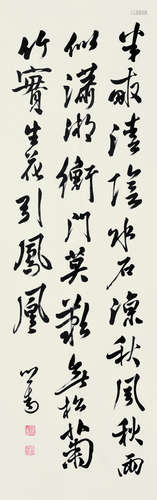 半畝清陰水石涼秋風秋雨
似瀟湘衡門莫歎無松菊
竹實生花引鳳凰
心畬